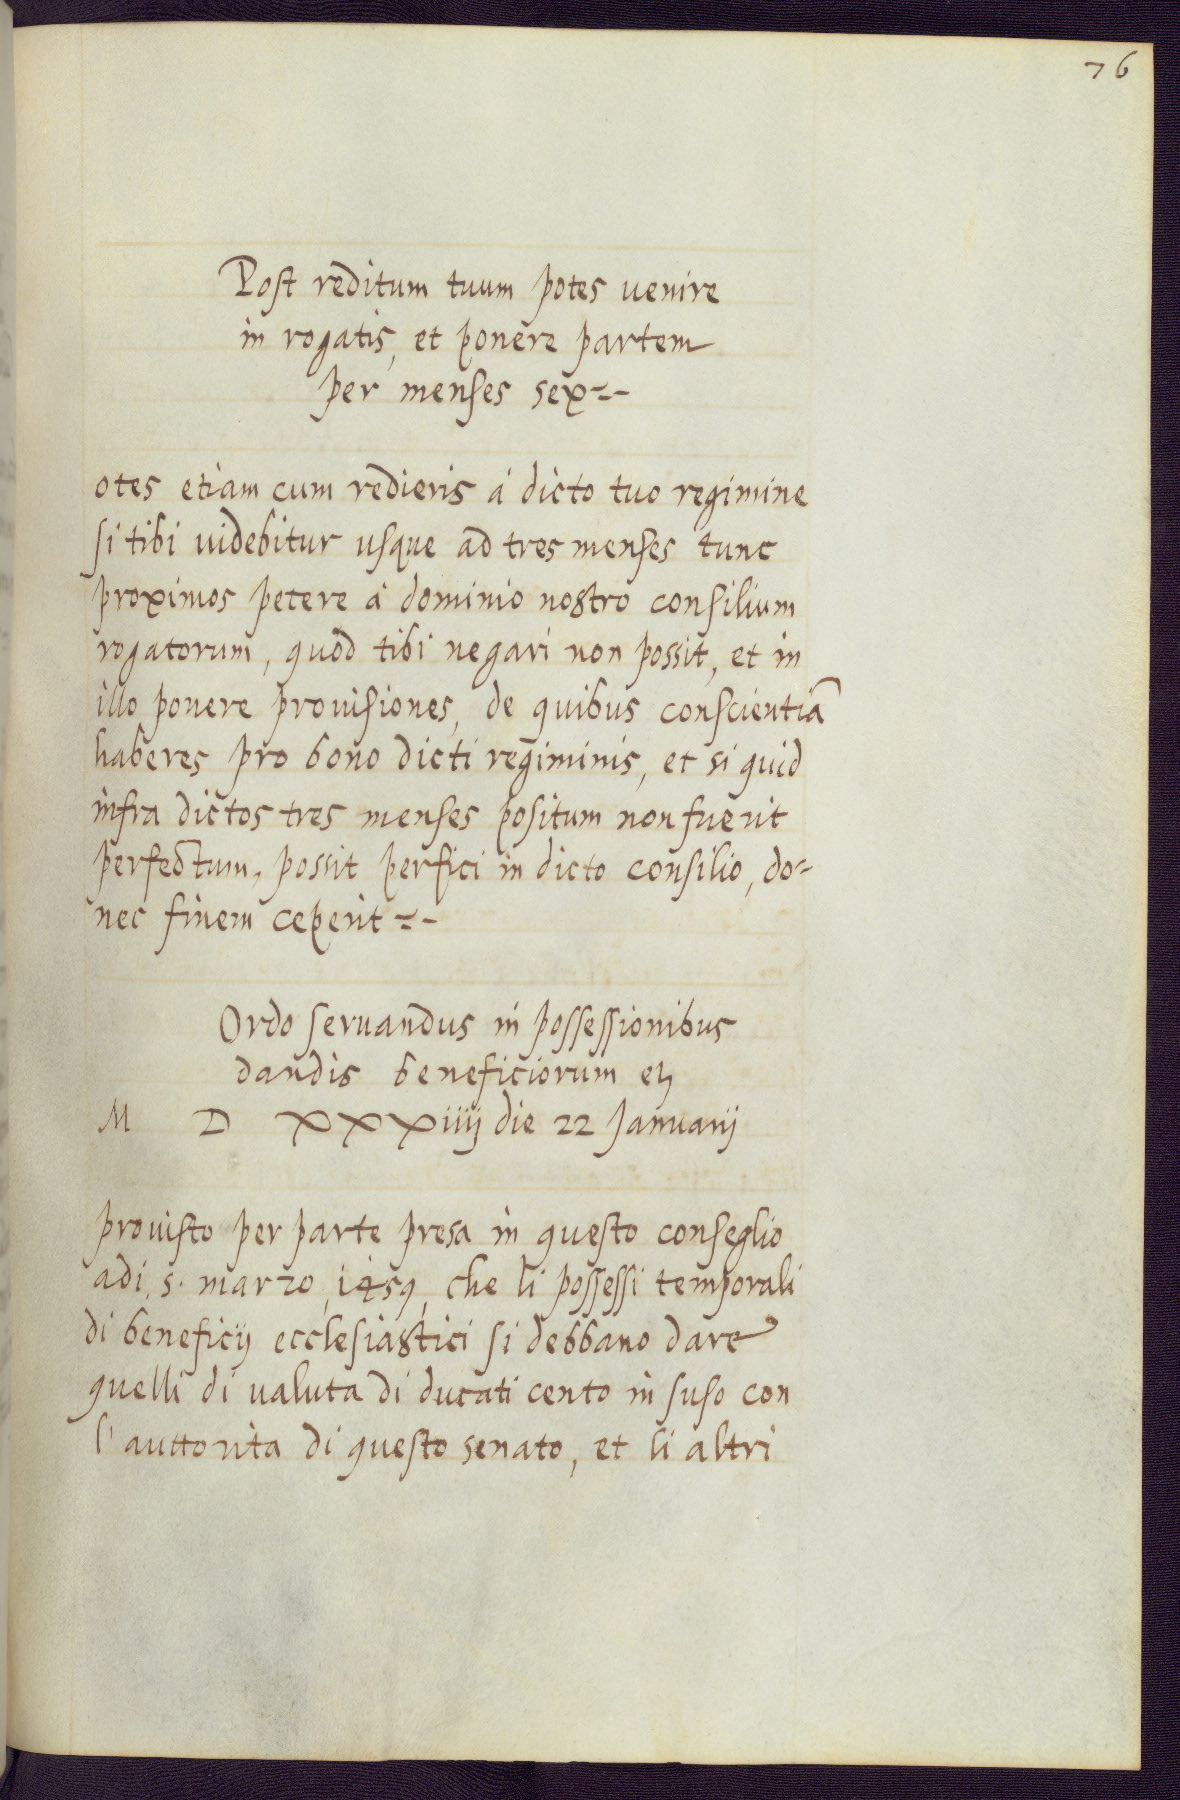 76
Post reditum tuum potes venire
in rogatis, et ponere partem
per menses sex=-
otes etiam cum redieris à dicto tuo regimine
si tibi uidebitur usque ad tres menses tunc
proximos petere à dominio nostro consilium
rogatorum, quod tibi negari non possit, et in
illo ponere prouisiones, de quibus conscientiā
haberes pro bono dicti regiminis, et si quid
infra dictos tres menses positum non fuerit
perfectum, possit perfici in dicto consilio, do-
nec finem ceperit=-
Ordo seruandus in possessionibus
dandis beneficiorum
M D XXXiiij die 22 Januarij
prouisto per parte presa in questo conseglio
adi. 5. marzo, 1459, che li possessi temporali
di beneficij ecclesiastici si debbano dare
quelli di ualuta di ducati cento in suso con
l'auttorita di questo senato, et li altri